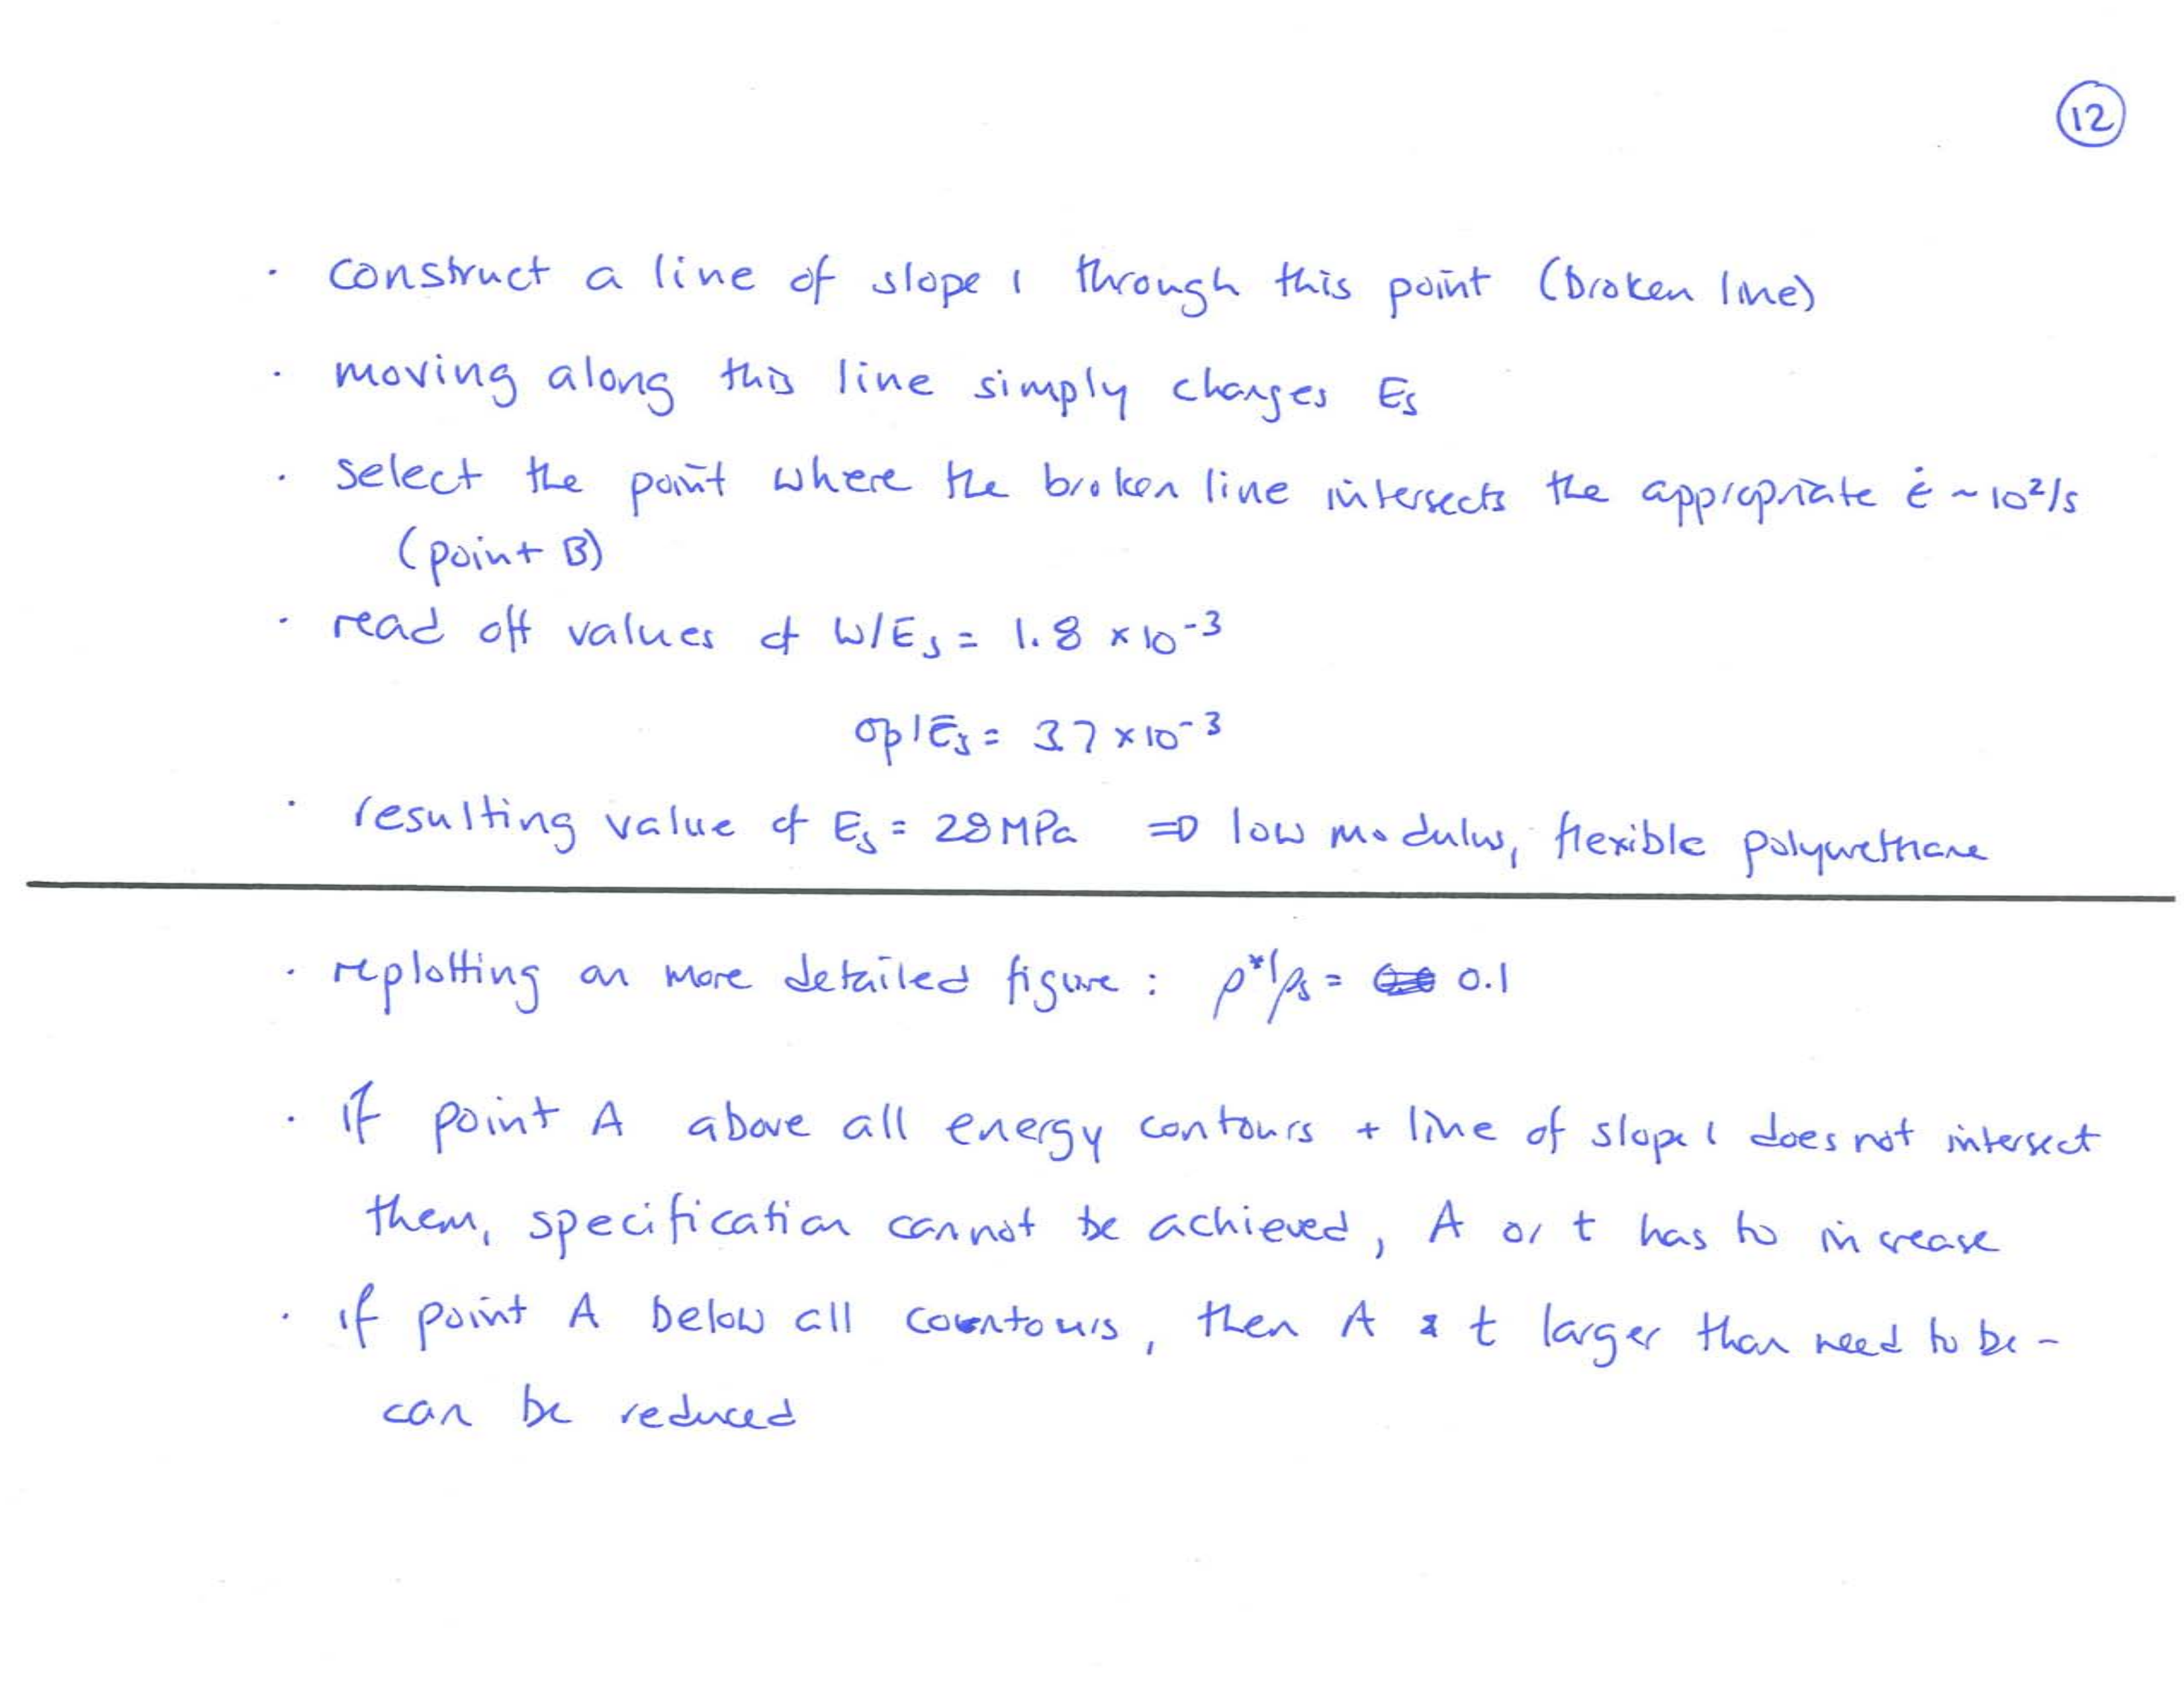 12
· construct a line of slope 1 through this point (broken line)
· moving along this line simply changes Es
· select the point where the broken line intersects the appropriate ε̇ ~ 10²/s
(point B)
· read off values of W/Es = 1.8 × 10⁻³
σp/Es = 3.7 × 10⁻³
· resulting value of Es = 28 MPa ⇒ low modulus, flexible polyurethane
· replotting on more detailed figure: ρ*/ρs = 0.1
· if point A above all energy contours + line of slope 1 does not intersect
them, specification cannot be achieved, A or t has to increase
· if point A below all contours, then A & t larger than need to be -
can be reduced